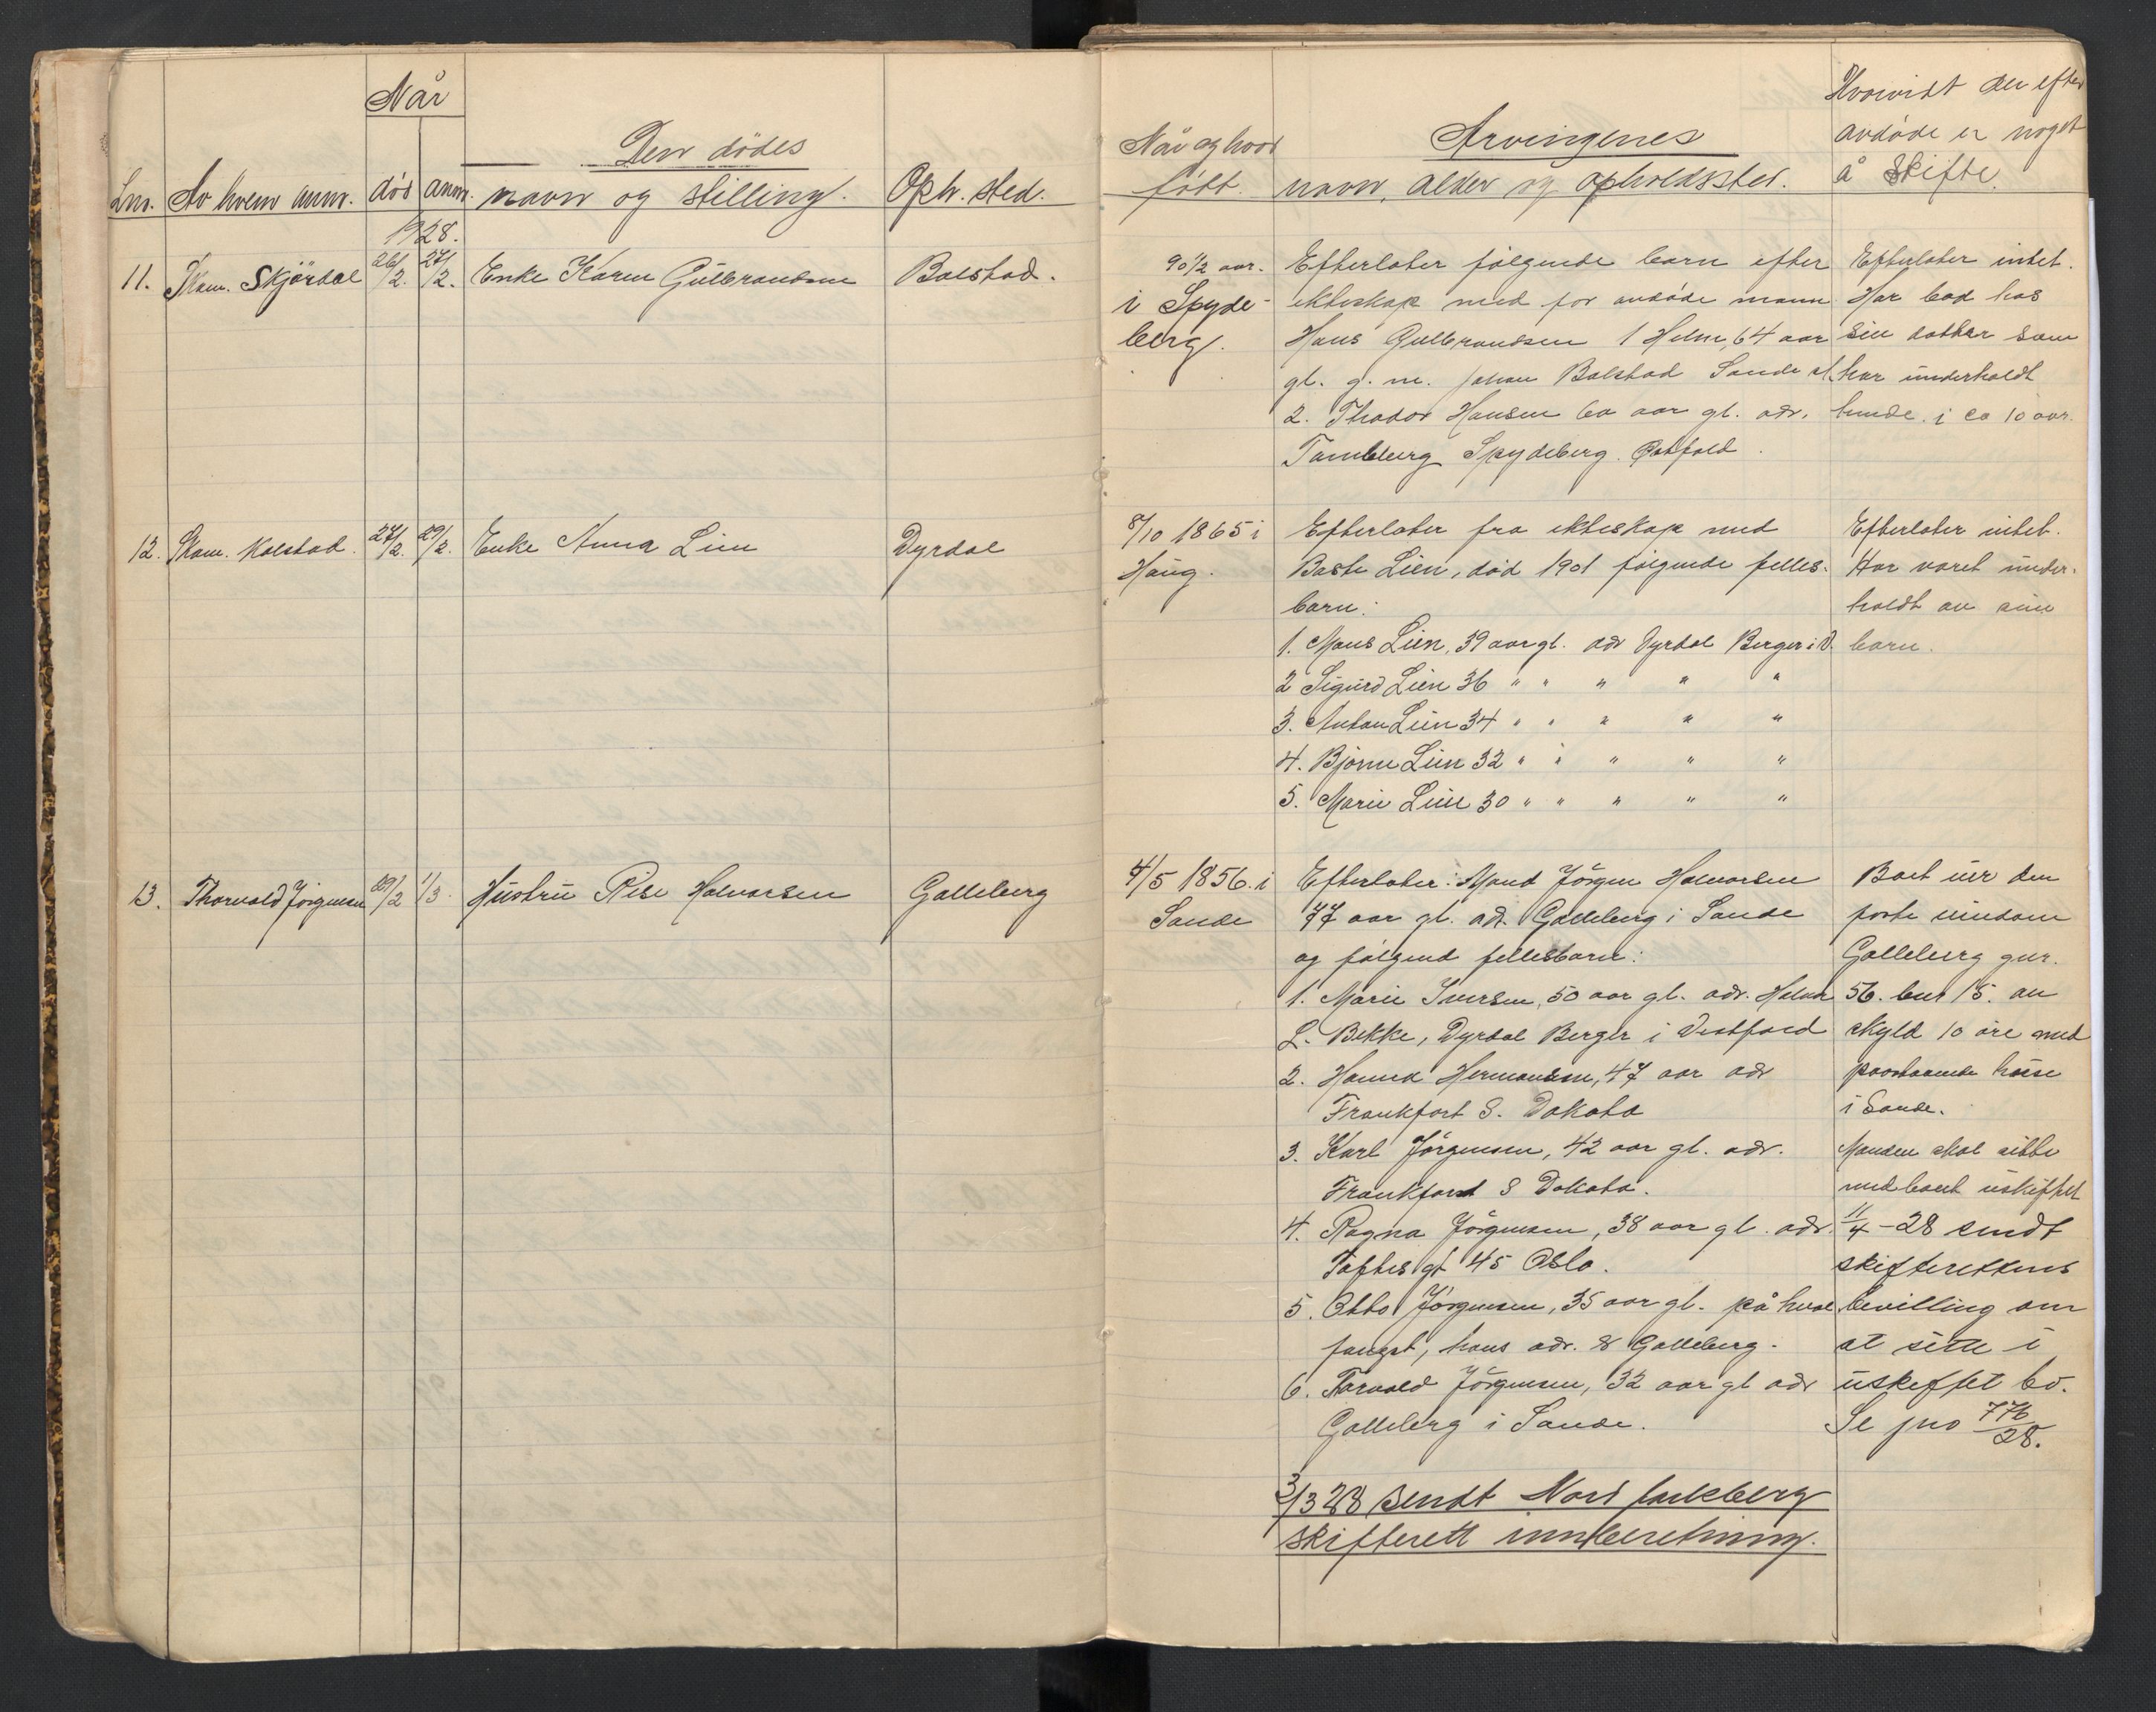 Når
Den dødes
Lnr. Av hvem anm. død anm. navn og stilling. Oph. sted.
1928.
11. Skam. Skjørdal 26/2. 27/2. Enke Karen Gulbrandsen Bolstad.
12. Skam. Kolstad. 27/2. 29/2. Enke Anna Lien Dyrdal
13. Thorvald Jørgensen 29/2 1/3. Hustru Else Halvorsen Galleberg
Når og hvor
født.
Arvingenes
navn, alder og opholdssted.
Hvorvidt der efter
avdøde er noget
å skifte.
90 1/2 aar.
i Spyde-
berg.
Efterlater følgende barn efter
ekteskap med før avdøde mann
Hans Gulbrandsen 1 Helene, 64 aar
gl. g. m. Johan Bolstad Sande st.
2. Thodor Hansen 60 aar gl. adr.
Tombleberg Spydeberg. Østfold.
Efterlater intet.
Har bod hos
sin datter som
har underholdt
hende i ca 10 aar.
8/10 1865 i
Haug.
Efterlater fra ekteskap med
Baste Lien, død 1901 følgende felles-
barn:
1. Hans Lien, 39 aar gl. adr Dyrdal Berger i V.
2 Sigurd Lien 36 " " " " "
3. Anton Lien 34 " " " " "
4. Bjarne Lien 32 " " " " "
5. Marie Lien 30 " " " " "
Efterlater intet.
Har været under-
holdt av sine
barn.
4/5 1856. i
Sande
Efterlater: Mand Jörgen Halvorsen
77 aar gl. adr. Galleberg i Sande
og følgend fellesbarn:
1. Marie Iversen, 50 aar gl. adr. Halvor
L. Bekke, Dyrdal Berger i Vestfold
2. Hanna Hermansen, 47 aar adr
Frankfort S. Dakota
3. Karl Jörgensen, 42 aar gl. adr.
Frankford S Dakota.
4. Ragna Jörgensen, 38 aar gl. adr.
Toftes gt 45 Oslo.
5. Otto Jörgensen, 35 aar gl. på hval
fangst, hans adr. er Galleberg.
6. Torvald Jörgensen, 32 aar gl adr
Galleberg i Sande.
3/3 28 sendt Nord Jarlsberg
skifterett innberetning.
Boet eier den
faste eiendom
Galleberg gnr.
56. bnr 15. av
skyld 10 øre med
paastaaende huse
i Sande.
Manden skal sitte
med boet uskiftet
11/4 - 28 sendt
skifterettens
bevilling om
at sitte i
uskiftet bo.
Se jno 776/28.